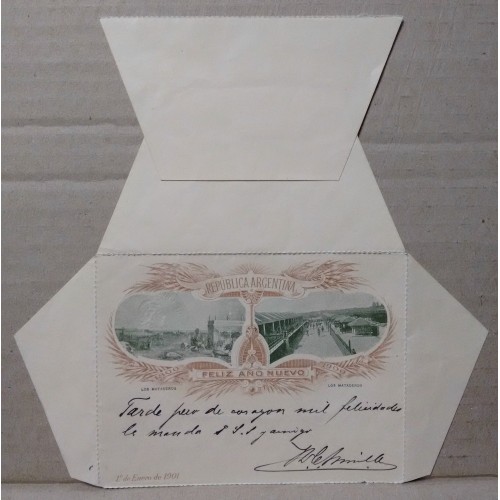 REPÚBLICA ARGENTINA
LOS MATADEROS
LOS MATADEROS
FELIZ AÑO NUEVO
Tarde pero de corazon mil felicidades
le manda S S.S y amigo
1º de Enero de 1901